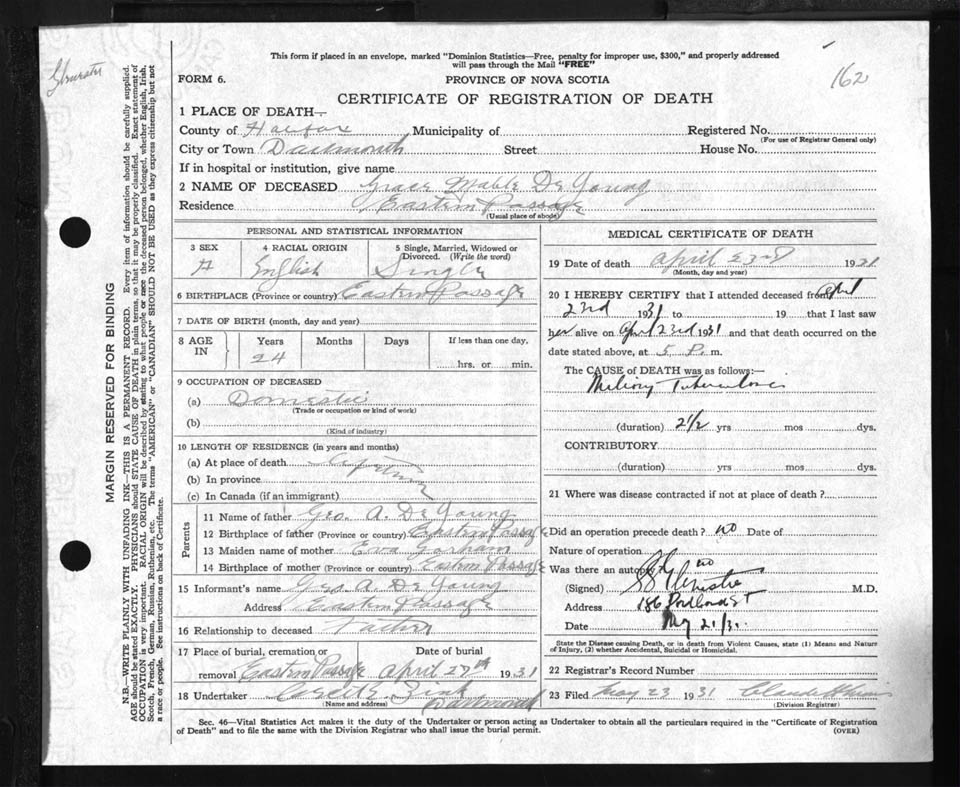 This form if placed in an envelope, marked "Dominion Statistics—Free, penalty for improper use, $300," and properly addressed
will pass through the Mail "FREE"
162
FORM 6.
PROVINCE OF NOVA SCOTIA
CERTIFICATE OF REGISTRATION OF DEATH
1 PLACE OF DEATH—
County of Halifax Municipality of Registered No.
(For use of Registrar General only)
City or Town Dartmouth Street House No.
If in hospital or institution, give name
2 NAME OF DECEASED Grace Mable De Young
Residence Eastern Passage
(Usual place of abode)
MARGIN RESERVED FOR BINDING
N.B.—WRITE PLAINLY WITH UNFADING INK—THIS IS A PERMANENT RECORD. Every item of information should be carefully supplied.
AGE should be stated EXACTLY. PHYSICIANS should STATE CAUSE OF DEATH in plain terms, so that it may be properly classified. Exact statement of
OCCUPATION is very important. RACIAL ORIGIN will be described by stating to what people or race the deceased person belonged, whether English, Irish,
Scotch, French, German, Russian, Ruthenian, etc. The terms "AMERICAN" or "CANADIAN" SHOULD NOT BE USED as they express citizenship but not
a race or people. See instructions on back of Certificate.
PERSONAL AND STATISTICAL INFORMATION
3 SEX
4 RACIAL ORIGIN
English
5 Single, Married, Widowed or
Divorced. (Write the word)
Single
6 BIRTHPLACE (Province or country) Eastern Passage
7 DATE OF BIRTH (month, day and year)
8 AGE
IN
Years
24
Months
Days
If less than one day,
hrs. or min.
9 OCCUPATION OF DECEASED
(a) Domestic
(Trade or occupation or kind of work)
(b)
(Kind of industry)
10 LENGTH OF RESIDENCE (in years and months)
(a) At place of death
(b) In province
(c) In Canada (if an immigrant)
Parents
11 Name of father Geo. A. De Young
12 Birthplace of father (Province or country) Eastern Passage
13 Maiden name of mother Eva
14 Birthplace of mother (Province or country) Eastern Passage
15 Informant's name Geo. A. De Young
Address Eastern Passage
16 Relationship to deceased Father
17 Place of burial, cremation or
removal Eastern Passage
Date of burial
April 27th 1931
18 Undertaker Zink
(Name and address) Dartmouth
MEDICAL CERTIFICATE OF DEATH
19 Date of death April 23rd 1931
(Month, day and year)
20 I HEREBY CERTIFY that I attended deceased from April
23rd 1931 to 19 that I last saw
her alive on April 23rd 1931 and that death occurred on the
date stated above, at 5 P. m.
The CAUSE of DEATH was as follows:
Miliary Tuberculosis
(duration) 2 1/2 yrs mos dys.
CONTRIBUTORY
(duration) yrs mos dys.
21 Where was disease contracted if not at place of death?
Did an operation precede death? no Date of
Nature of operation
Was there an autopsy? no
(Signed) M.D.
Address 186 Portland St
Date May 21/31
State the Disease causing Death, or in death from Violent Causes, state (1) Means and Nature
of Injury, (2) whether Accidental, Suicidal or Homicidal.
22 Registrar's Record Number
23 Filed May 23 1931
(Division Registrar)
Sec. 46—Vital Statistics Act makes it the duty of the Undertaker or person acting as Undertaker to obtain all the particulars required in the "Certificate of Registration
of Death" and to file the same with the Division Registrar who shall issue the burial permit.
(OVER)